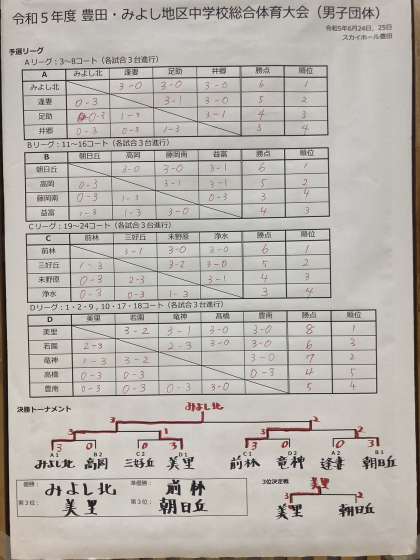 令和5年度 豊田・みよし地区中学校総合体育大会（男子団体）
令和5年6月24日、25日
スカイホール豊田
予選リーグ
Aリーグ：3～8コート（各試合3台進行）
A みよし北 逢妻 足助 井郷 勝点 順位
みよし北 3-0 3-0 3-0 6 1
逢妻 0-3 3-1 3-0 5 2
足助 0-3 1-3 3-1 4 3
井郷 0-3 0-3 1-3 3 4
Bリーグ：11～16コート（各試合3台進行）
B 朝日丘 高岡 藤岡南 益富 勝点 順位
朝日丘 3-0 3-0 3-1 6 1
高岡 0-3 3-1 3-1 5 2
藤岡南 0-3 1-3 0-3 3 4
益富 1-3 1-3 3-0 4 3
Cリーグ：19～24コート（各試合3台進行）
C 前林 三好丘 末野原 浄水 勝点 順位
前林 3-1 3-0 3-0 6 1
三好丘 1-3 3-2 3-0 5 2
末野原 0-3 2-3 3-1 4 3
浄水 0-3 0-3 1-3 3 4
Dリーグ：1・2・9、10・17・18コート（各試合3台進行）
D 美里 若園 竜神 高橋 豊南 勝点 順位
美里 3-2 3-1 3-0 3-0 8 1
若園 2-3 2-3 3-0 3-0 6 3
竜神 1-3 3-2 3-0 7 2
高橋 0-3 0-3 0-3 4 5
豊南 0-3 0-3 0-3 3-0 5 4
決勝トーナメント
みよし北
3 2
3 1 3 2
3 0 0 3 3 0 0 3
A1 B2 C2 D1 C1 D2 A2 B1
みよし北 高岡 三好丘 美里 前林 竜神 逢妻 朝日丘
優勝： みよし北 準優勝： 前林
第3位： 美里 第3位： 朝日丘
3位決定戦
美里
3 2
美里 朝日丘